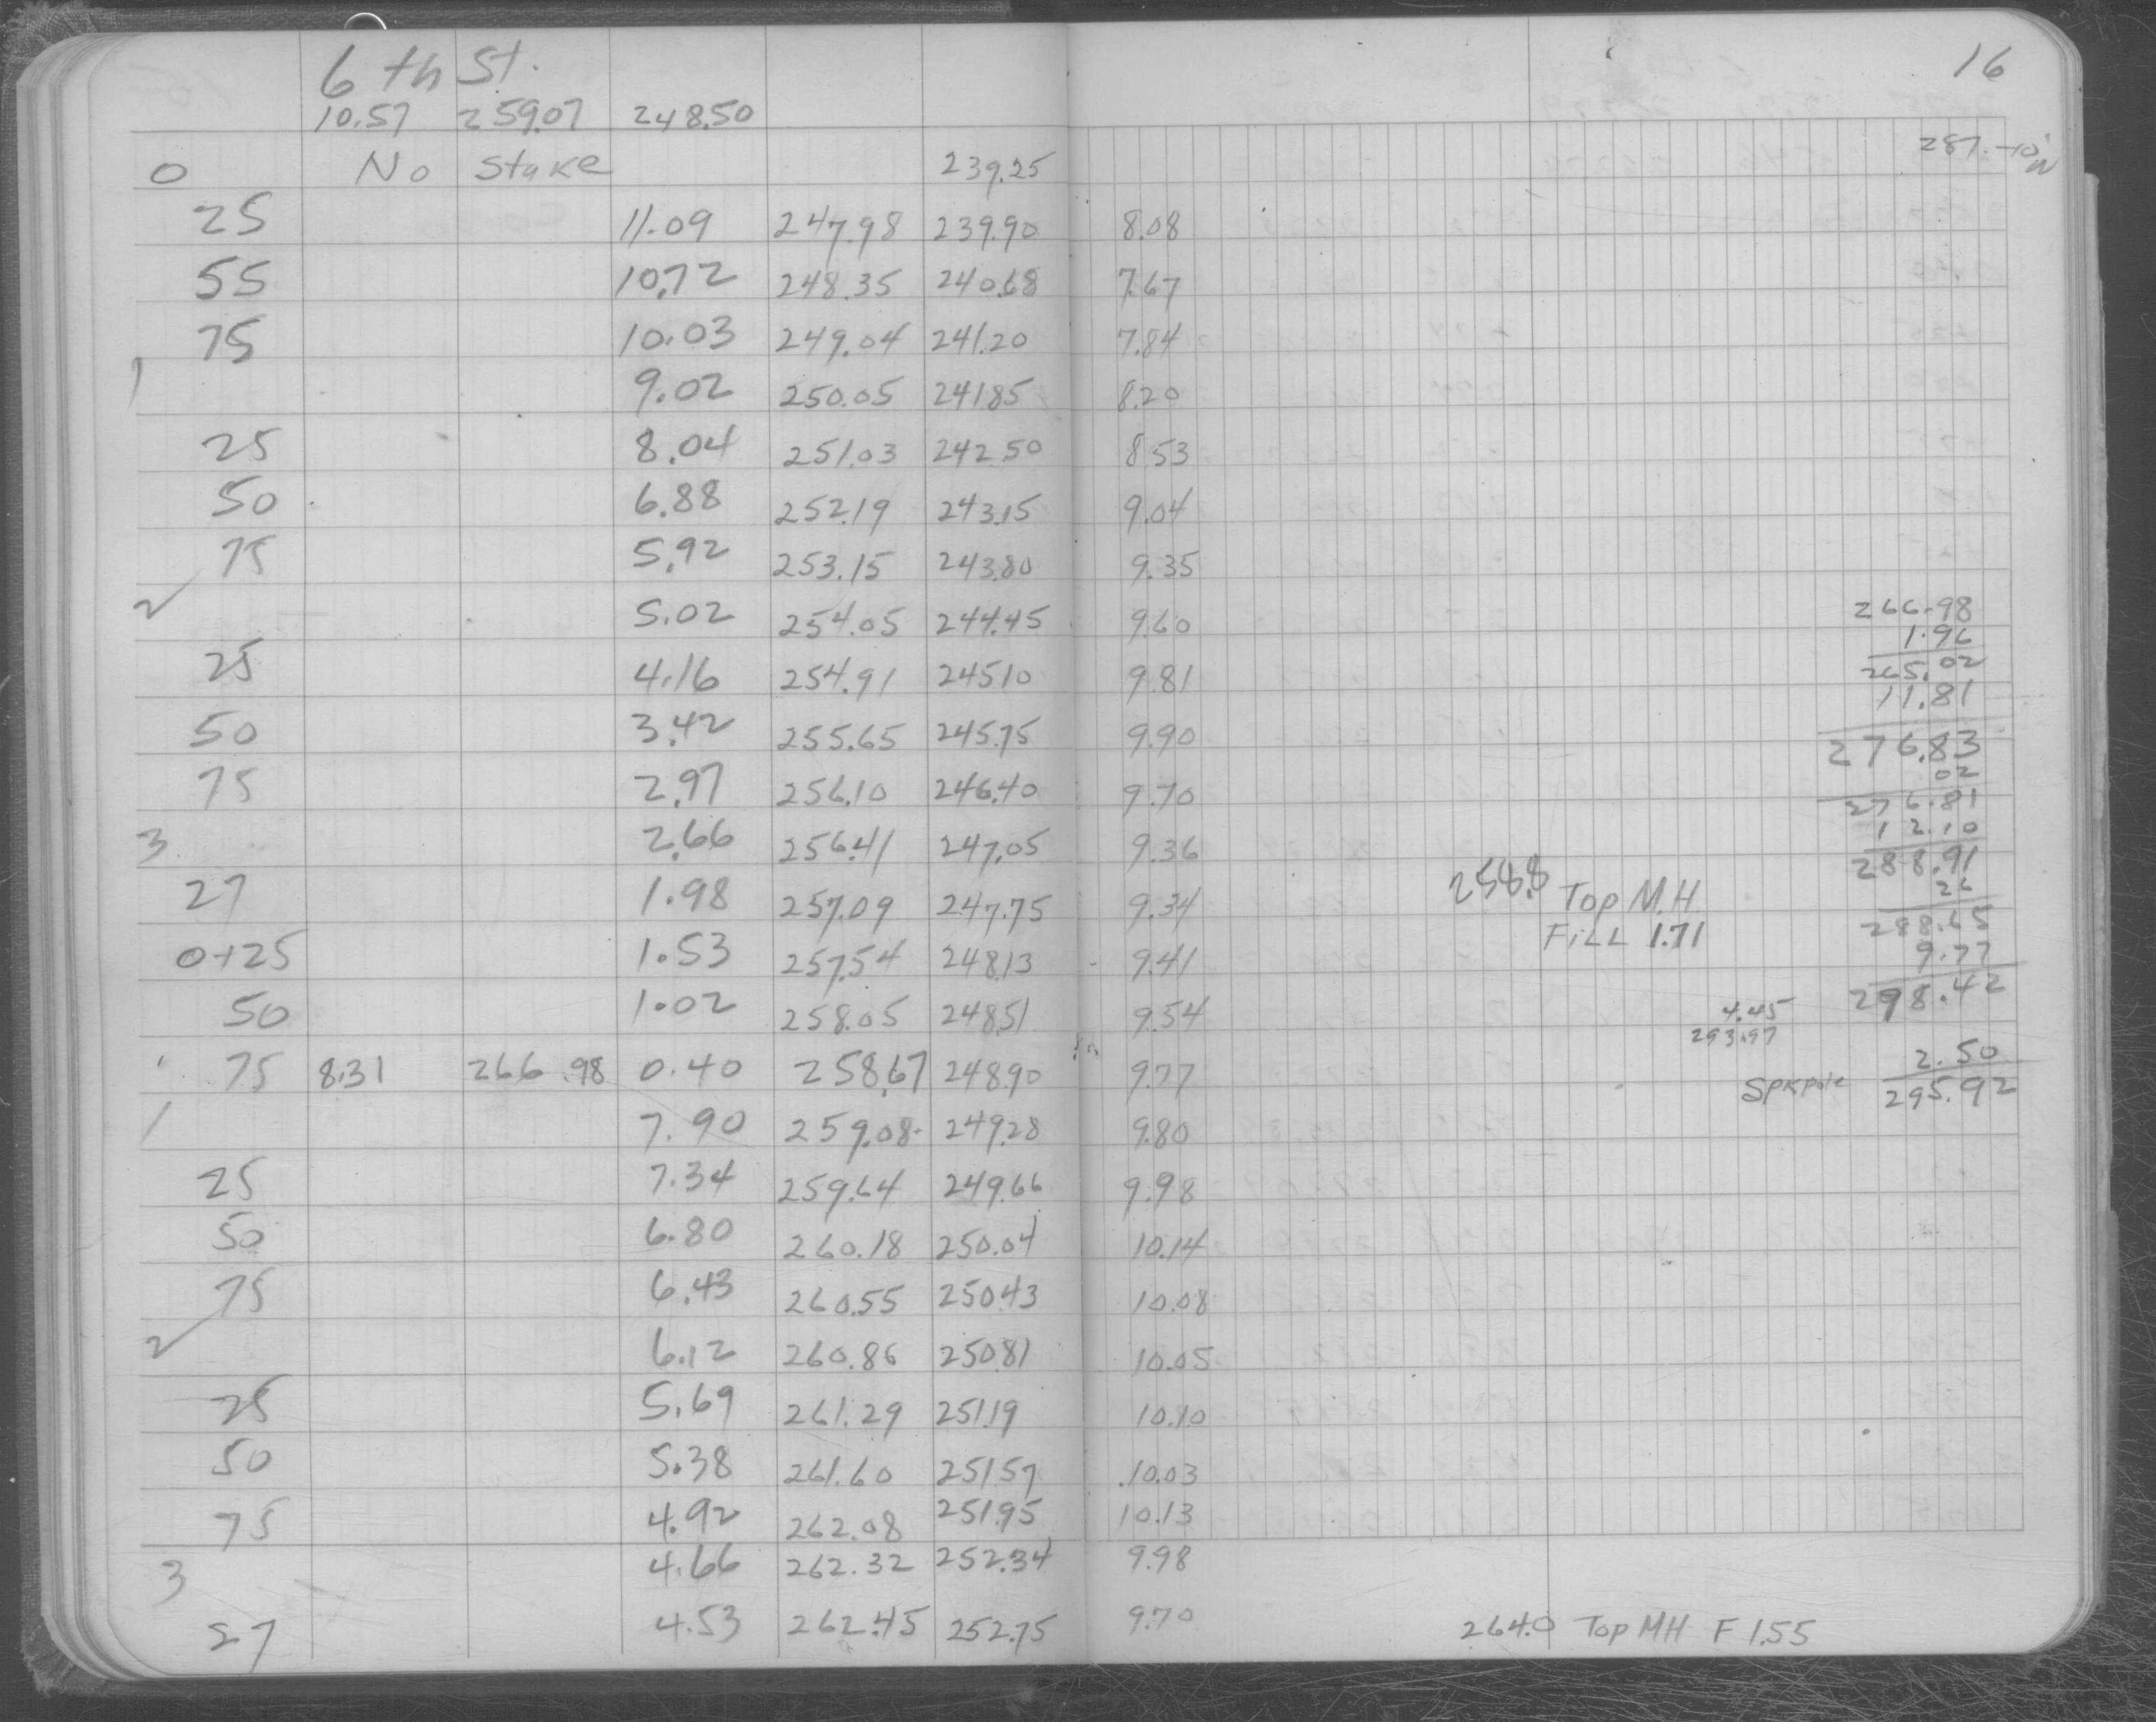 16
6 th St.
10.57 259.07 248.50
0 No Stake 239.25
25 11.09 247.98 239.90 8.08
55 10.72 248.35 240.68 7.67
75 10.03 249.04 241.20 7.84
1 9.02 250.05 241.85 8.20
25 8.04 251.03 242.50 8.53
50 6.88 252.19 243.15 9.04
75 5.92 253.15 243.80 9.35
2 5.02 254.05 244.45 9.60
25 4.16 254.91 245.10 9.81
50 3.42 255.65 245.75 9.90
75 2.97 256.10 246.40 9.70
3 2.66 256.41 247.05 9.36
27 1.98 257.09 247.75 9.34
0+25 1.53 257.54 248.13 9.41
50 1.02 258.05 248.51 9.54
75 8.31 266.98 0.40 258.67 248.90 9.77
1 7.90 259.08 249.28 9.80
25 7.34 259.64 249.66 9.98
50 6.80 260.18 250.04 10.14
75 6.43 260.55 250.43 10.08
2 6.12 260.86 250.81 10.05
25 5.69 261.29 251.19 10.10
50 5.38 261.60 251.57 10.03
75 4.92 262.08 251.95 10.13
3 4.66 262.32 252.34 9.98
27 4.53 262.45 252.75 9.70
266.98
1.96
265.02
11.81
276.83
02
276.81
12.10
288.91
26
288.65
9.77
298.42
2.50
Spk pole 295.92
4.45
293.97
258.8 Top M.H
FILL 1.71
264.0 Top MH F 1.55